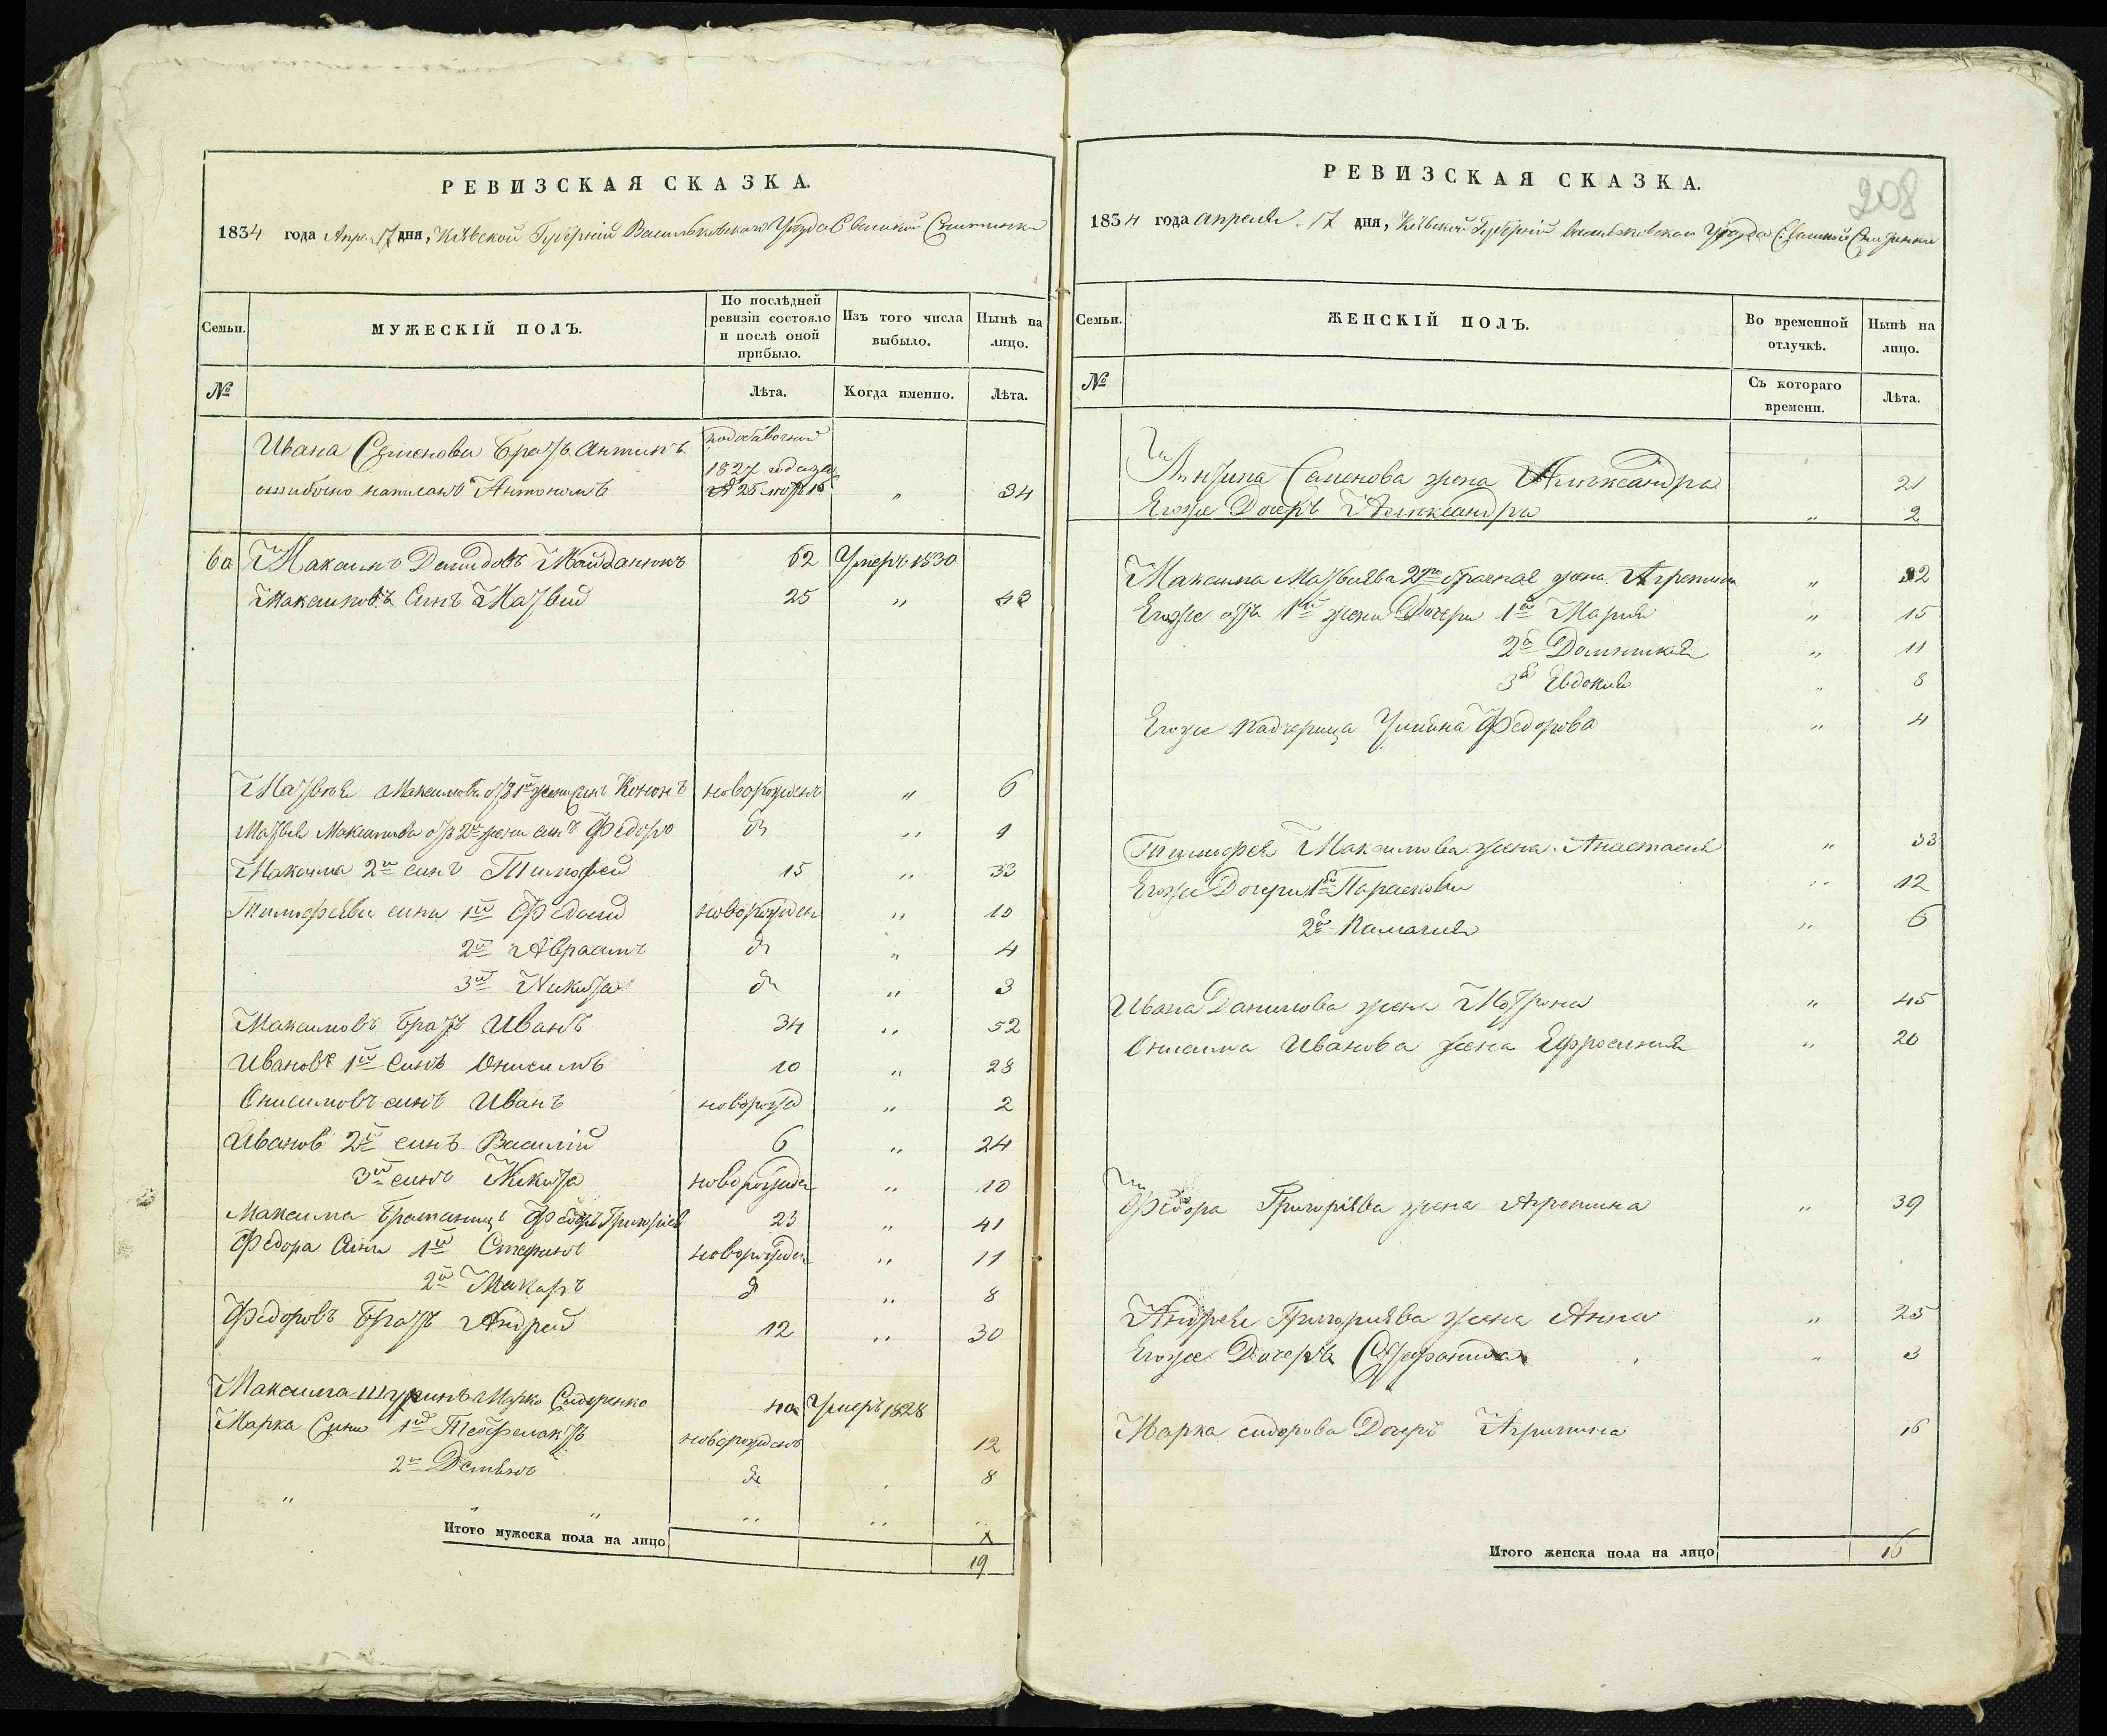 РЕВИЗСКАЯ СКАЗКА.
1834 года Апре. 17 дня, Кіевской Губерніи Васильковскаго Уѣзда С Великой Снитинки
Семьи.
МУЖЕСКІЙ ПОЛЪ.
По послѣдней ревизіи состояло и послѣ оной прибыло.
Изъ того числа выбыло.
Нынѣ на лицо.
№
Лѣта.
Когда именно.
Лѣта.
Ивана Семенова братъ Антипъ
ошибочно написанъ Антономъ
1827 года
25
"
34
60 Максимъ Демидовъ Майданюкъ 62 Умеръ 1830
Максимовъ Синъ Матвей 25 " 43
Матвея Максимова отъ 1й жени синъ Кононъ новорожденъ " 6
Матвея Максимова отъ 2й жени синъ Федоръ д " 1
Максима 2й синъ Тимофей 15 " 33
Тимофеева сини 1й Федосей новорожден " 10
2й Авраамъ д " 4
3й Никита д " 3
Максимовъ братъ Иванъ 34 " 52
Ивановъ 1й Синъ Онисимъ 10 " 28
Онисимовъ синъ Иванъ новорожд " 2
Иванов 2й синъ Василій 6 " 24
3й синъ Никита новорожден " 10
Максима братаницъ Федоръ Григоріев 23 " 41
Федора Сини 1й Стефанъ новорожден " 11
2й Макаръ д " 8
Федоровъ братъ Андрей 12 " 30
Максима шуринъ Марко Сидоренко 40 Умеръ 1828
Марка Сини 1й Теофилактъ новорожденъ 12
2й Демьянъ д 8
" " " " " "
Итого мужеска пола на лицо
19
РЕВИЗСКАЯ СКАЗКА.
208
1834 года апреля 17 дня, Кіевской Губерніи Васильковскаго Уѣзда С: Великой Снитинки
Семьи.
ЖЕНСКІЙ ПОЛЪ.
Во временной отлучкѣ.
Нынѣ на лицо.
№
Съ котораго времени.
Лѣта.
Антипа Семенова жена Александра 21
Егоже Дочеръ Александра " 2
Максима Матвѣева 2го брачная жена Агрепина " 32
Егоже отъ 1й жени Дочери 1я Марія " 15
2я Домникия " 11
3я Евдокия " 8
Егоже падчерица Улияна Федорова " 4
Тимофея Максимова жена Анастасия " 33
Егоже Дочери 1я Параскови " 12
2я Пелагия " 6
Ивана Данилова жена Мотрона " 45
Онисима Иванова жена Ефросиния " 20
Федора Григоріева жена Агрепина " 39
Андрея Григориева жена Анна " 25
Егоже Дочеръ Стефанида " 3
Марка сидорова Дочеръ Агрипина 16
Итого женска пола на лицо
16